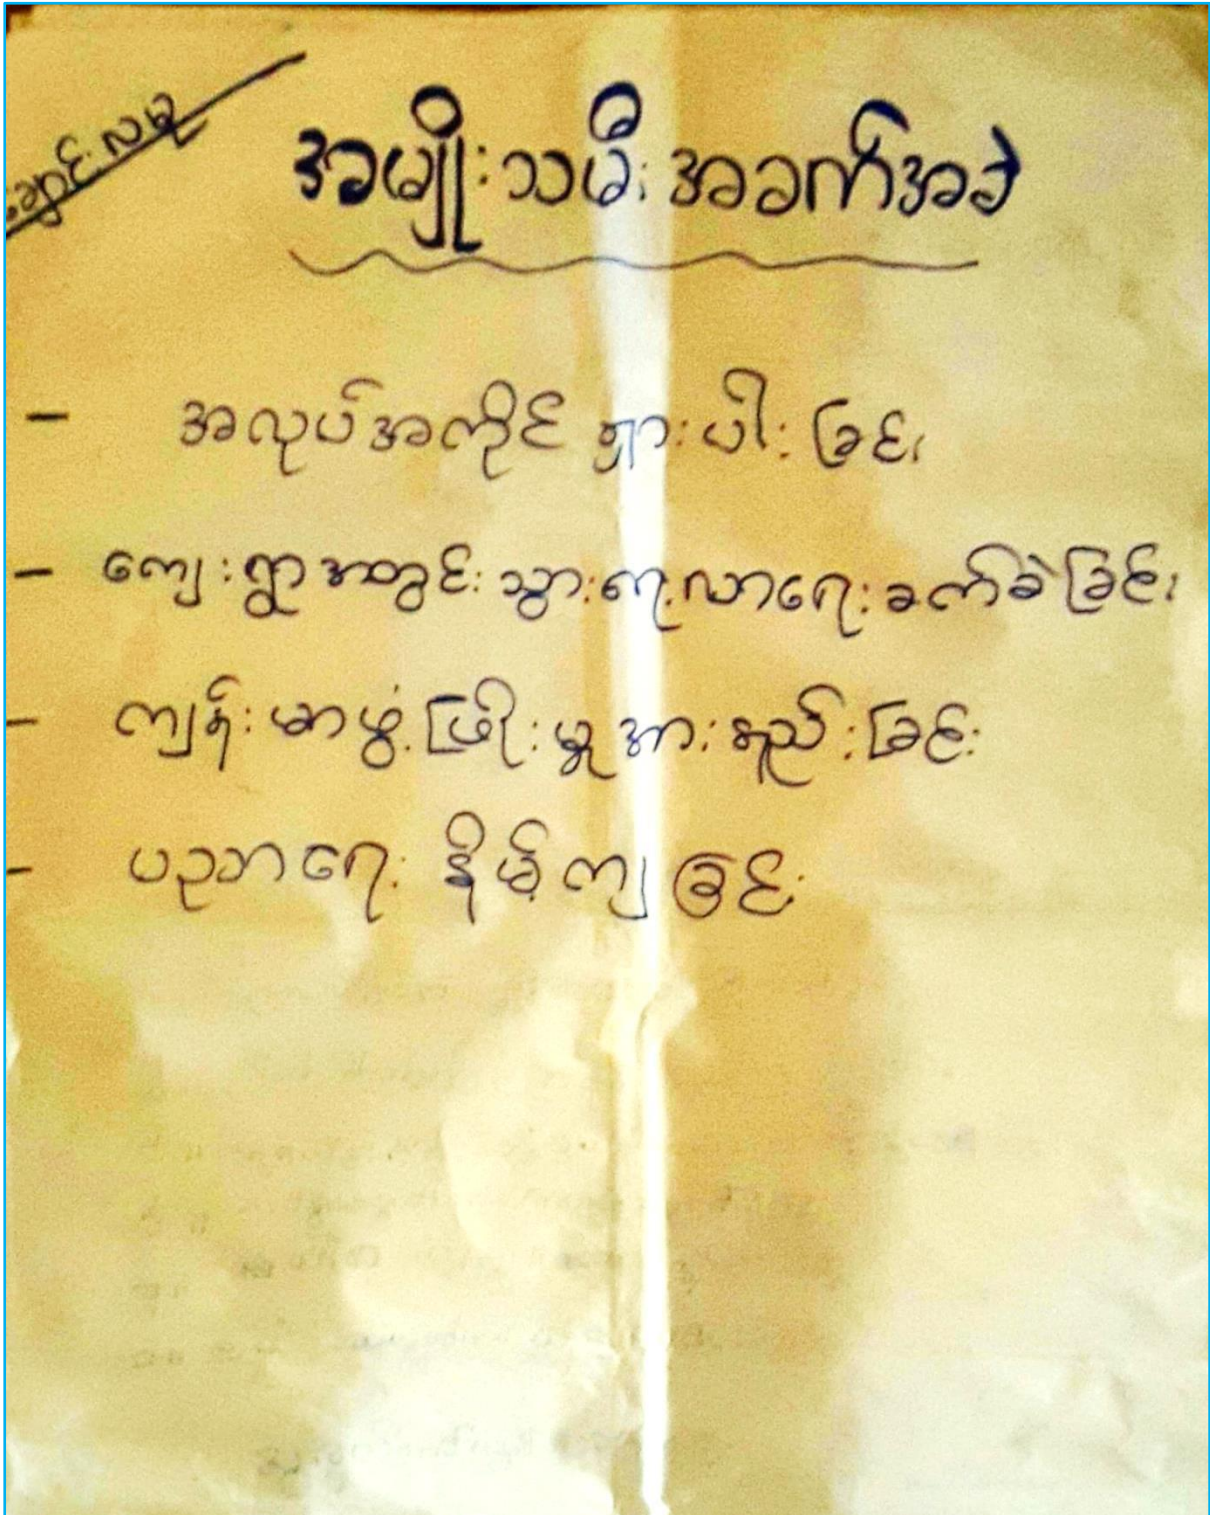 အမျိုးသမီးအခက်အခဲ
- အလုပ်အကိုင် ရှားပါးခြင်း
- ကျေးရွာအတွင်းသွားရေးလာရေးခက်ခဲခြင်း
- ကျန်းမာဖွံ့ဖြိုးမှုအားနည်းခြင်း
- ပညာရေး နိမ့်ကျခြင်း